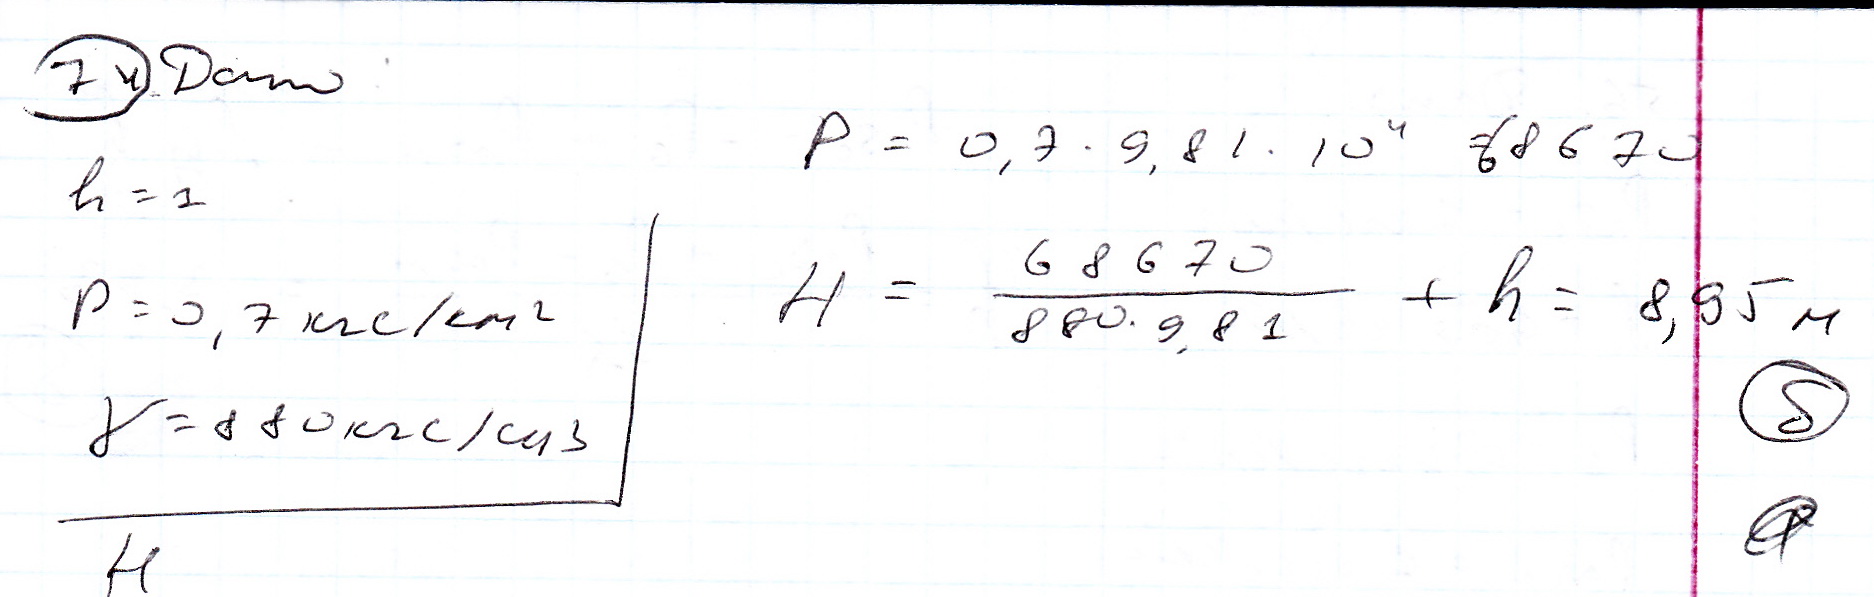 74 Дано
h = 1
P = 0,7 кгс/см2
γ = 880 кгс/см3
H
P = 0,7 · 9,81 · 10⁴ = 68670
H = 68670 / 880 · 9,81 + h = 8,95 м
б